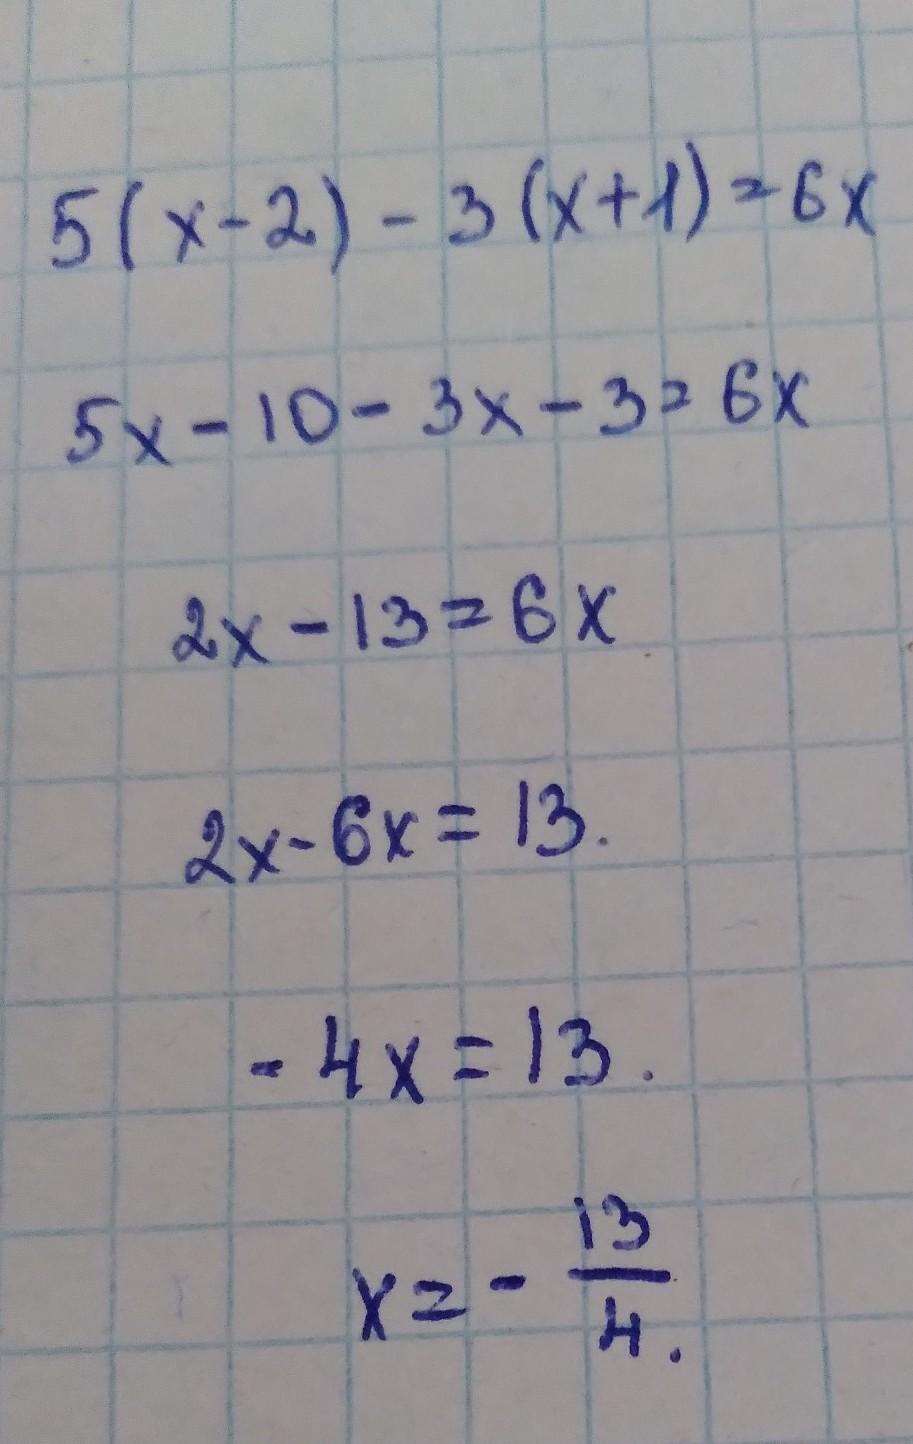 5(x-2)-3(x+1)=6x
5x-10-3x-3=6x
2x-13=6x
2x-6x=13.
-4x=13.
x=-13/4.